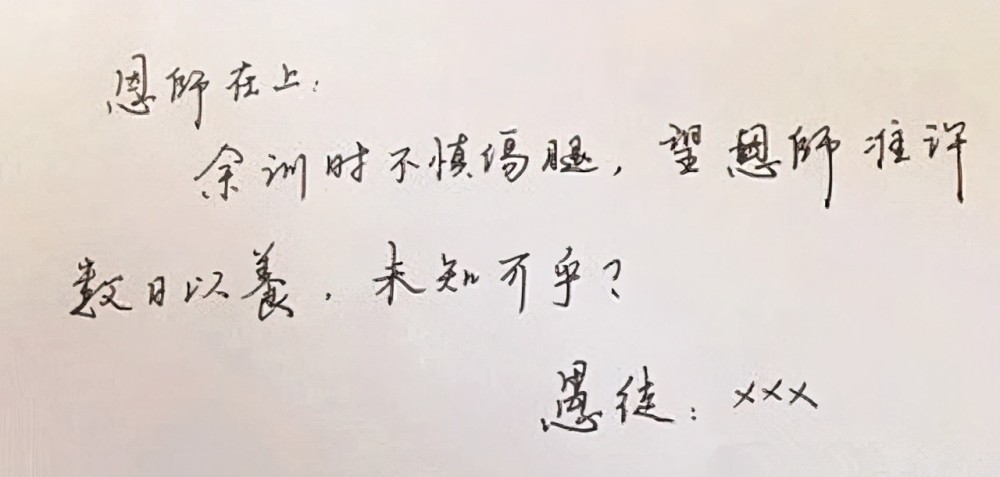 恩師在上:
余训时不慎伤腿,望恩師准许
数日以養,未知可乎?
愚徒:xxx